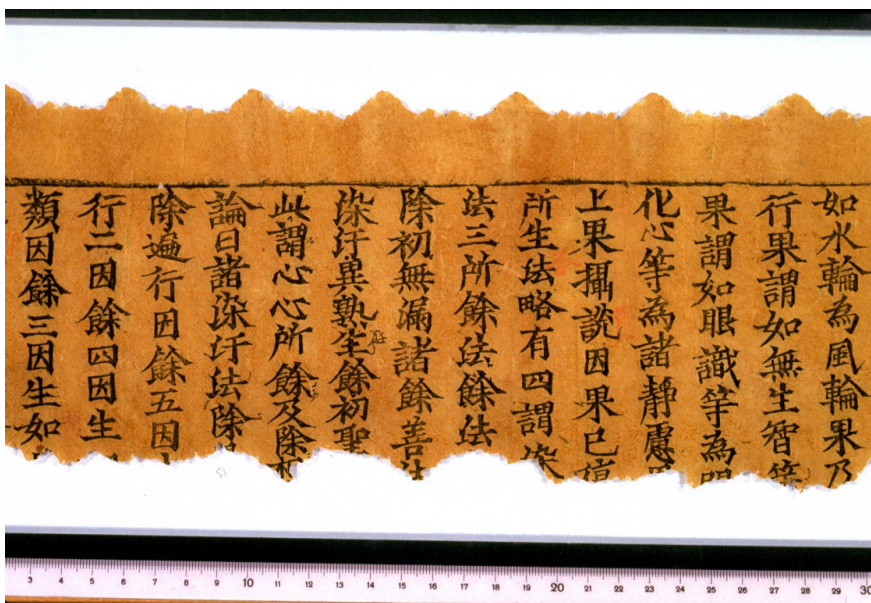 如水輪為風輪果乃
行果謂如無生智等
果謂如眼識等為
化心等為諸靜慮
上果攝說因果已復
所生法略有四謂染
法三所餘法餘法
除初無漏諸餘善法
染汙異熟生餘初聖
此謂心心所餘及除相
論曰諸染汙法除
除遍行因餘五因
行二因餘四因生
類因餘三因生如
3 4 5 6 7 8 9 10 11 12 13 14 15 16 17 18 19 20 21 22 23 24 25 26 27 28 29 30